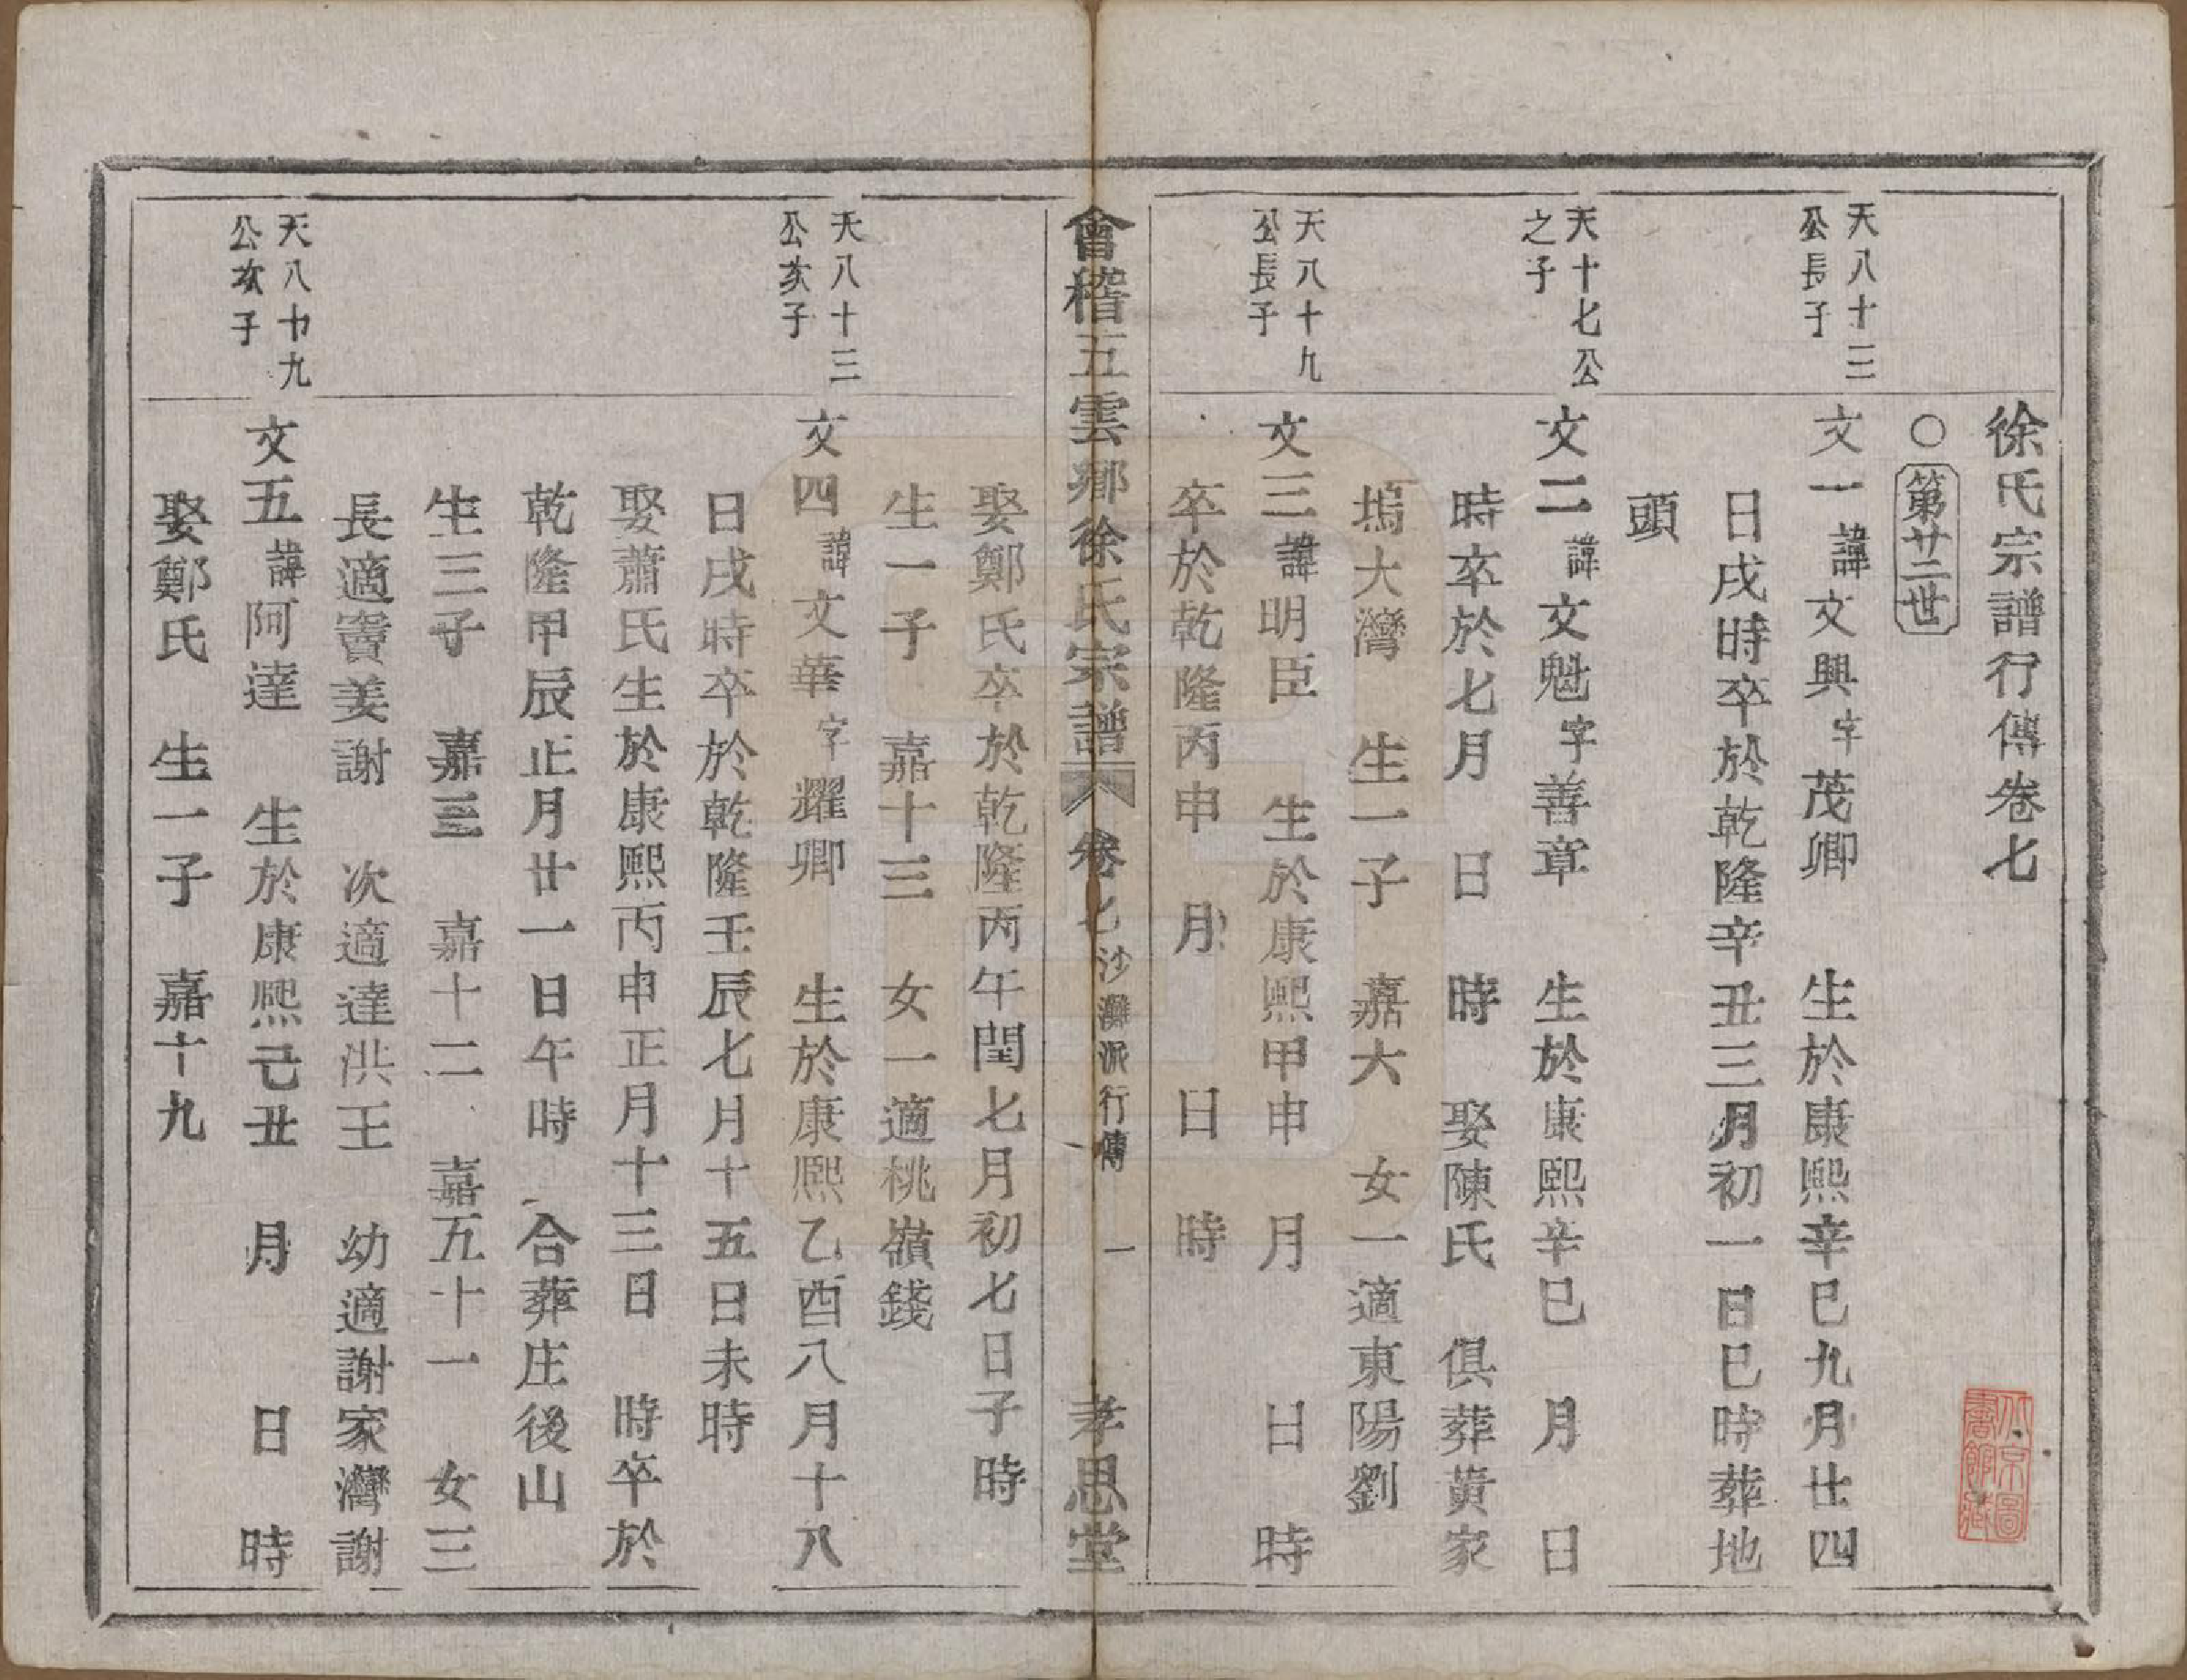 徐氏宗譜行傳卷七
○第廿二世
天八十三
公長子
文一諱文興字茂卿 生於康熙辛巳九月廿四
日戌時卒於乾隆辛丑三月初一日巳時葬地
頭
天十七公
之子
文二諱文魁字善章 生於康熙辛巳 月 日
時卒於七月 日 時 娶陳氏 俱葬黃家
塢大灣 生一子 嘉六 女一適東陽劉
天八十九
公長子
文三諱明臣 生於康熙甲申 月 日 時
卒於乾隆丙申 月 日 時
會稽五雲鄉徐氏宗譜 卷七 沙灘派行傳 一 孝思堂
娶鄭氏卒於乾隆丙午閏七月初七日子時
生一子 嘉十三 女一適桃嶺錢
天八十三
公次子
文四諱文華字耀卿 生於康熙乙酉八月十八
日戌時卒於乾隆壬辰七月十五日未時
娶蕭氏生於康熙丙申正月十三日 時卒於
乾隆甲辰正月廿一日午時 合葬庄後山
生三子 嘉三 嘉十二 嘉五十一 女三
長適竇姜謝 次適達洪王 幼適謝家灣謝
天八十九
公次子
文五諱阿達 生於康熙己丑 月 日 時
娶鄭氏 生一子 嘉十九